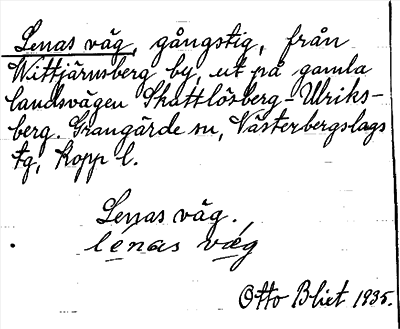 Lenas väg, gångstig, från
Wittjärnsberg by, ut på gamla
landsvägen Skattlösberg-Ulriks-
berg. Grangärde sn, Västerbergslags
tg, Kopp l.
Lenas väg.
lénas væg
Otto Blixt 1935.